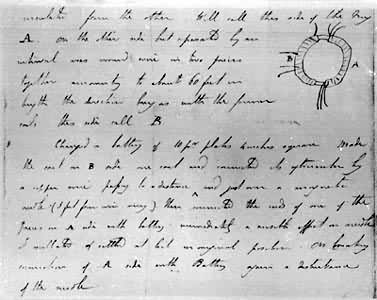 insulated from the other. Will call this side of the Ring
A. On the other side but separated by an
interval was wound wire in two pieces
together amounting to about 60 feet in
length the direction being as with the former
coils this side call B
B A
Charged a battery of 10 pr plates 4 inches square. Made
the coil on B side one coil and connected its extremities by
a copper wire passing to a distance and just over a magnetic
needle (3 feet from iron ring) then connected the ends of one of the
pieces on A side with battery immediately a sensible effect on needle
It oscillated & settled at last in original position. On breaking
connection of A side with Battery again a disturbance
of the needle